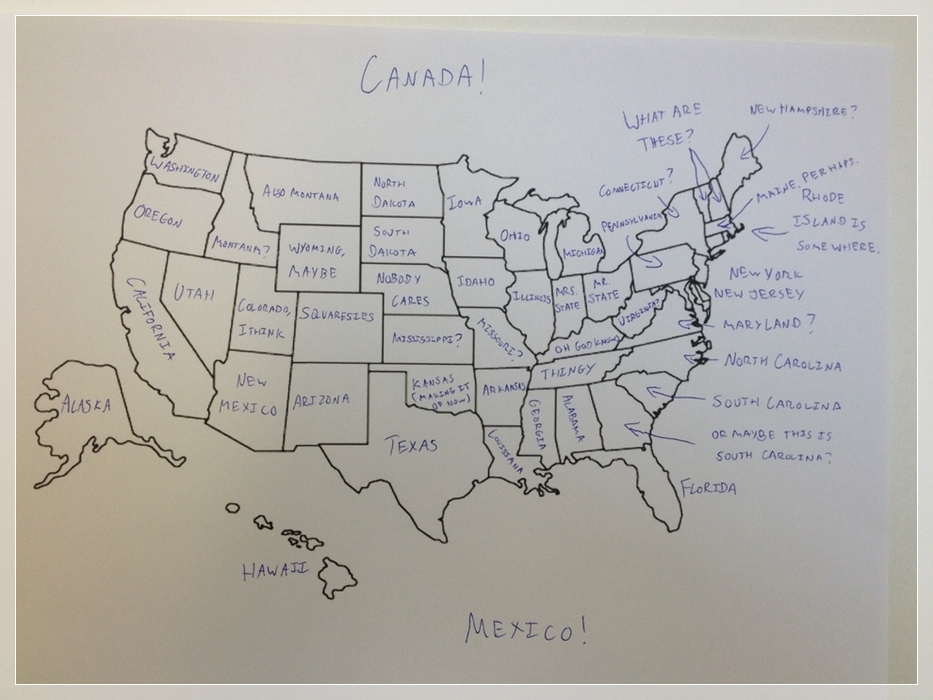 CANADA!
WHAT ARE
THESE?
NEW HAMPSHIRE?
WASHINGTON
ALSO MONTANA
NORTH
DAKOTA
IOWA
CONNECTICUT?
MAINE, PERHAPS.
RHODE
ISLAND IS
SOMEWHERE.
OREGON
MONTANA?
WYOMING,
MAYBE
SOUTH
DAKOTA
OHIO
MICHIGAN
PENNSYLVANIA
NEW YORK
NEW JERSEY
CALIFORNIA
UTAH
COLORADO,
I THINK
SQUARESIES
NOBODY
CARES
IDAHO
ILLINOIS
MRS.
STATE
MR.
STATE
VIRGINIA?
MARYLAND?
MISSISSIPPI?
MISSOURI?
OH GOD KNOWS
NORTH CAROLINA
ALASKA
NEW
MEXICO
ARIZONA
KANSAS
(MAKING IT
UP NOW)
ARKANSAS
THINGY
SOUTH CAROLINA
TEXAS
LOUISIANA
GEORGIA
ALABAMA
OR MAYBE THIS IS
SOUTH CAROLINA?
FLORIDA
HAWAII
MEXICO!